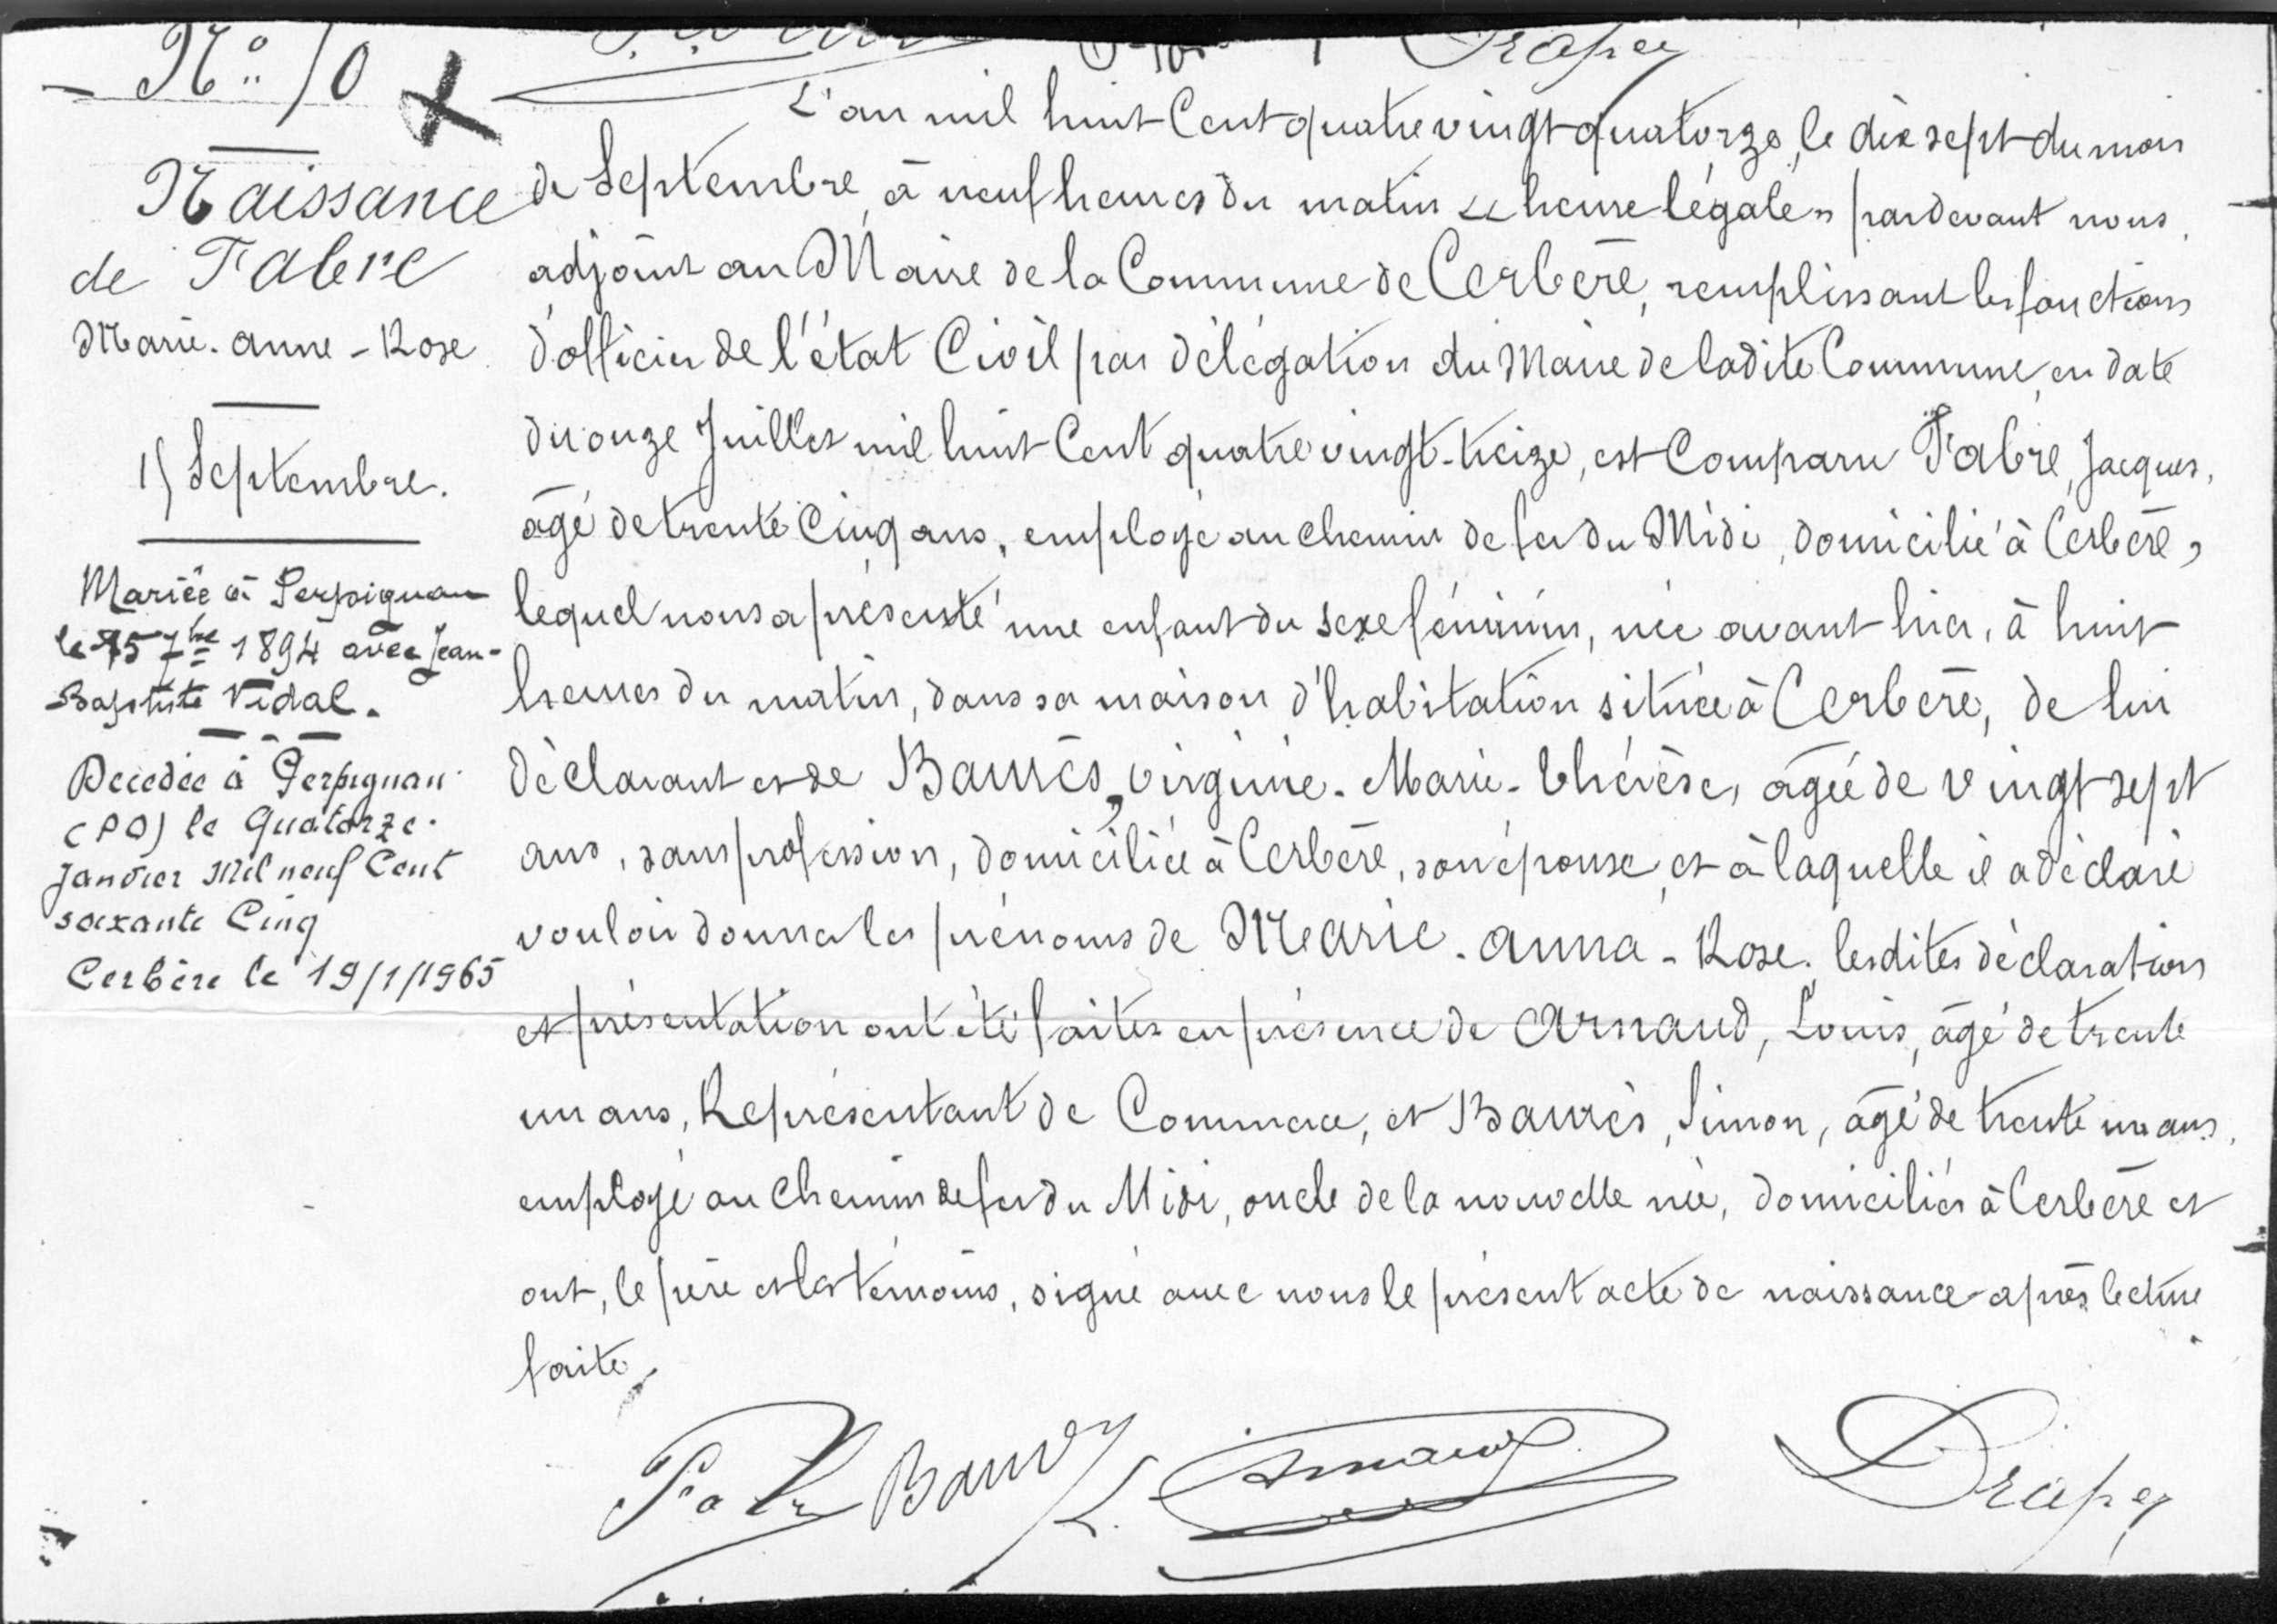 N° 10
Naissance
de Fabre
Marie-Anne-Rose
17 Septembre.
Mariée à Perpignan
le 15 7bre 1894 avec Jean-
Baptiste Vidal.
Décedée à Perpignan
(PO) le Quatorze
Janvier Mil neuf Cent
soixante Cinq
Cerbère le 19/1/1965
L'an mil huit Cent quatre vingt quatorze, le dix sept du mois
de Septembre, à neuf heures du matin « heure légale » pardevant nous,
adjoint au Maire de la Commune de Cerbère, remplissant les fonctions
d'officier de l'état Civil par délégation du Maire de ladite Commune, en date
du onze Juillet mil huit Cent quatre vingt-treize, est Comparu Fabre, Jacques,
âgé de trente Cinq ans, employé au chemin de fer du Midi, domicilié à Cerbère,
lequel nous a présenté une enfant du sexe féminin, née avant hier, à huit
heures du matin, dans sa maison d'habitation située à Cerbère, de lui
déclarant et de Baurès, Virginie-Marie-Thérèse, âgée de vingt sept
ans, sans profession, domiciliée à Cerbère, son épouse, et à laquelle il a déclaré
vouloir donner les prénoms de Marie-Anna-Rose. lesdites déclarations
et présentation ont été faites en présence de Arnaud, Louis, âgé de trente
un ans, Représentant de Commerce, et Baurès, Simon, âgé de trente un ans,
employé au Chemin de fer du Midi, oncle de la nouvelle née, domiciliés à Cerbère et
ont, le père et les témoins, signé avec nous le présent acte de naissance après lecture
faite.
Fabre Baurès L. Arnaud Drapey